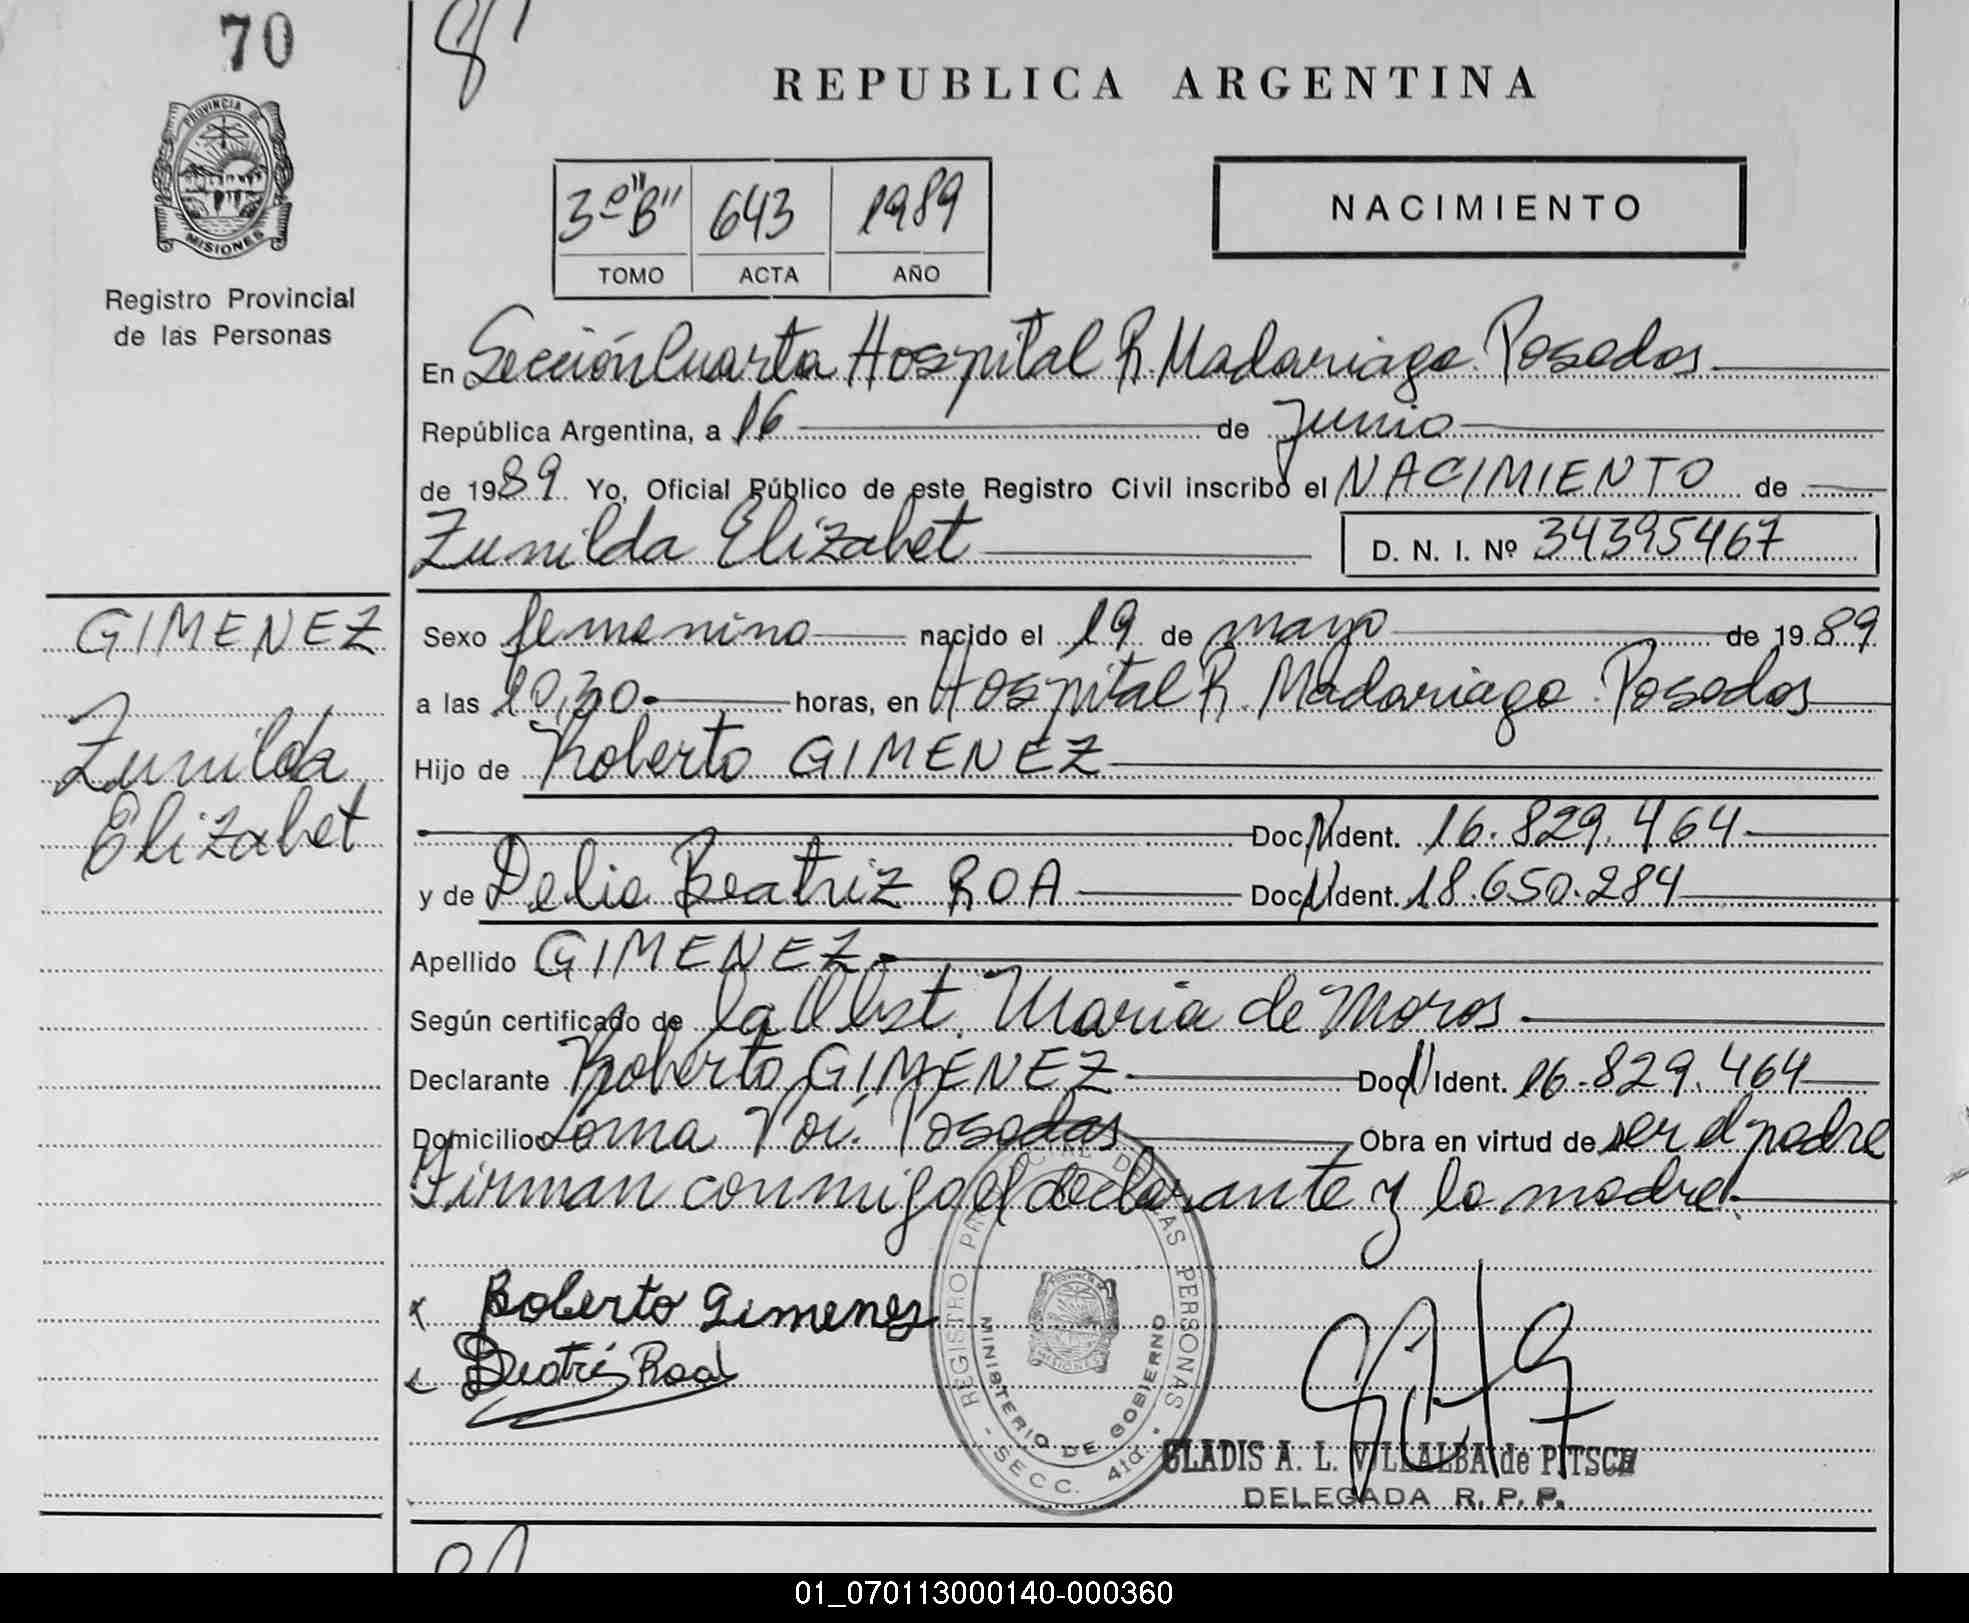 70
PROVINCIA DE
MISIONES
Registro Provincial
de las Personas
GIMENEZ
Zunilda
Elizabet
REPUBLICA ARGENTINA
3º "B" 643 1989
TOMO ACTA AÑO
NACIMIENTO
En Sección Cuarta Hospital R. Madariaga. Posadas
República Argentina, a 16 de Junio
de 1989 Yo, Oficial Público de este Registro Civil inscribo el NACIMIENTO de
Zunilda Elizabet D. N. I. Nº 34395467
Sexo femenino nacido el 19 de mayo de 1989
a las 10,30 horas, en Hospital R. Madariaga. Posadas
Hijo de Roberto GIMENEZ
Doc. N Ident. 16.829.464
y de Delia Beatriz ROA Doc. N Ident. 18.650.284
Apellido GIMENEZ
Según certificado de la Obst. Maria de Moros
Declarante Roberto GIMENEZ Doc. N Ident. 16.829.464
Domicilio Loma Poi. Posadas Obra en virtud de ser el padre
Firman conmigo el declarante y la madre.
x Roberto Gimenez
Beatris Roa
REGISTRO PROVINCIAL DE LAS PERSONAS
MINISTERIO DE GOBIERNO
SECC. 4ta.
PROVINCIA DE
MISIONES
GLADIS A. L. VILLALBA de PITSCH
DELEGADA R. P. P.
01_070113000140-000360